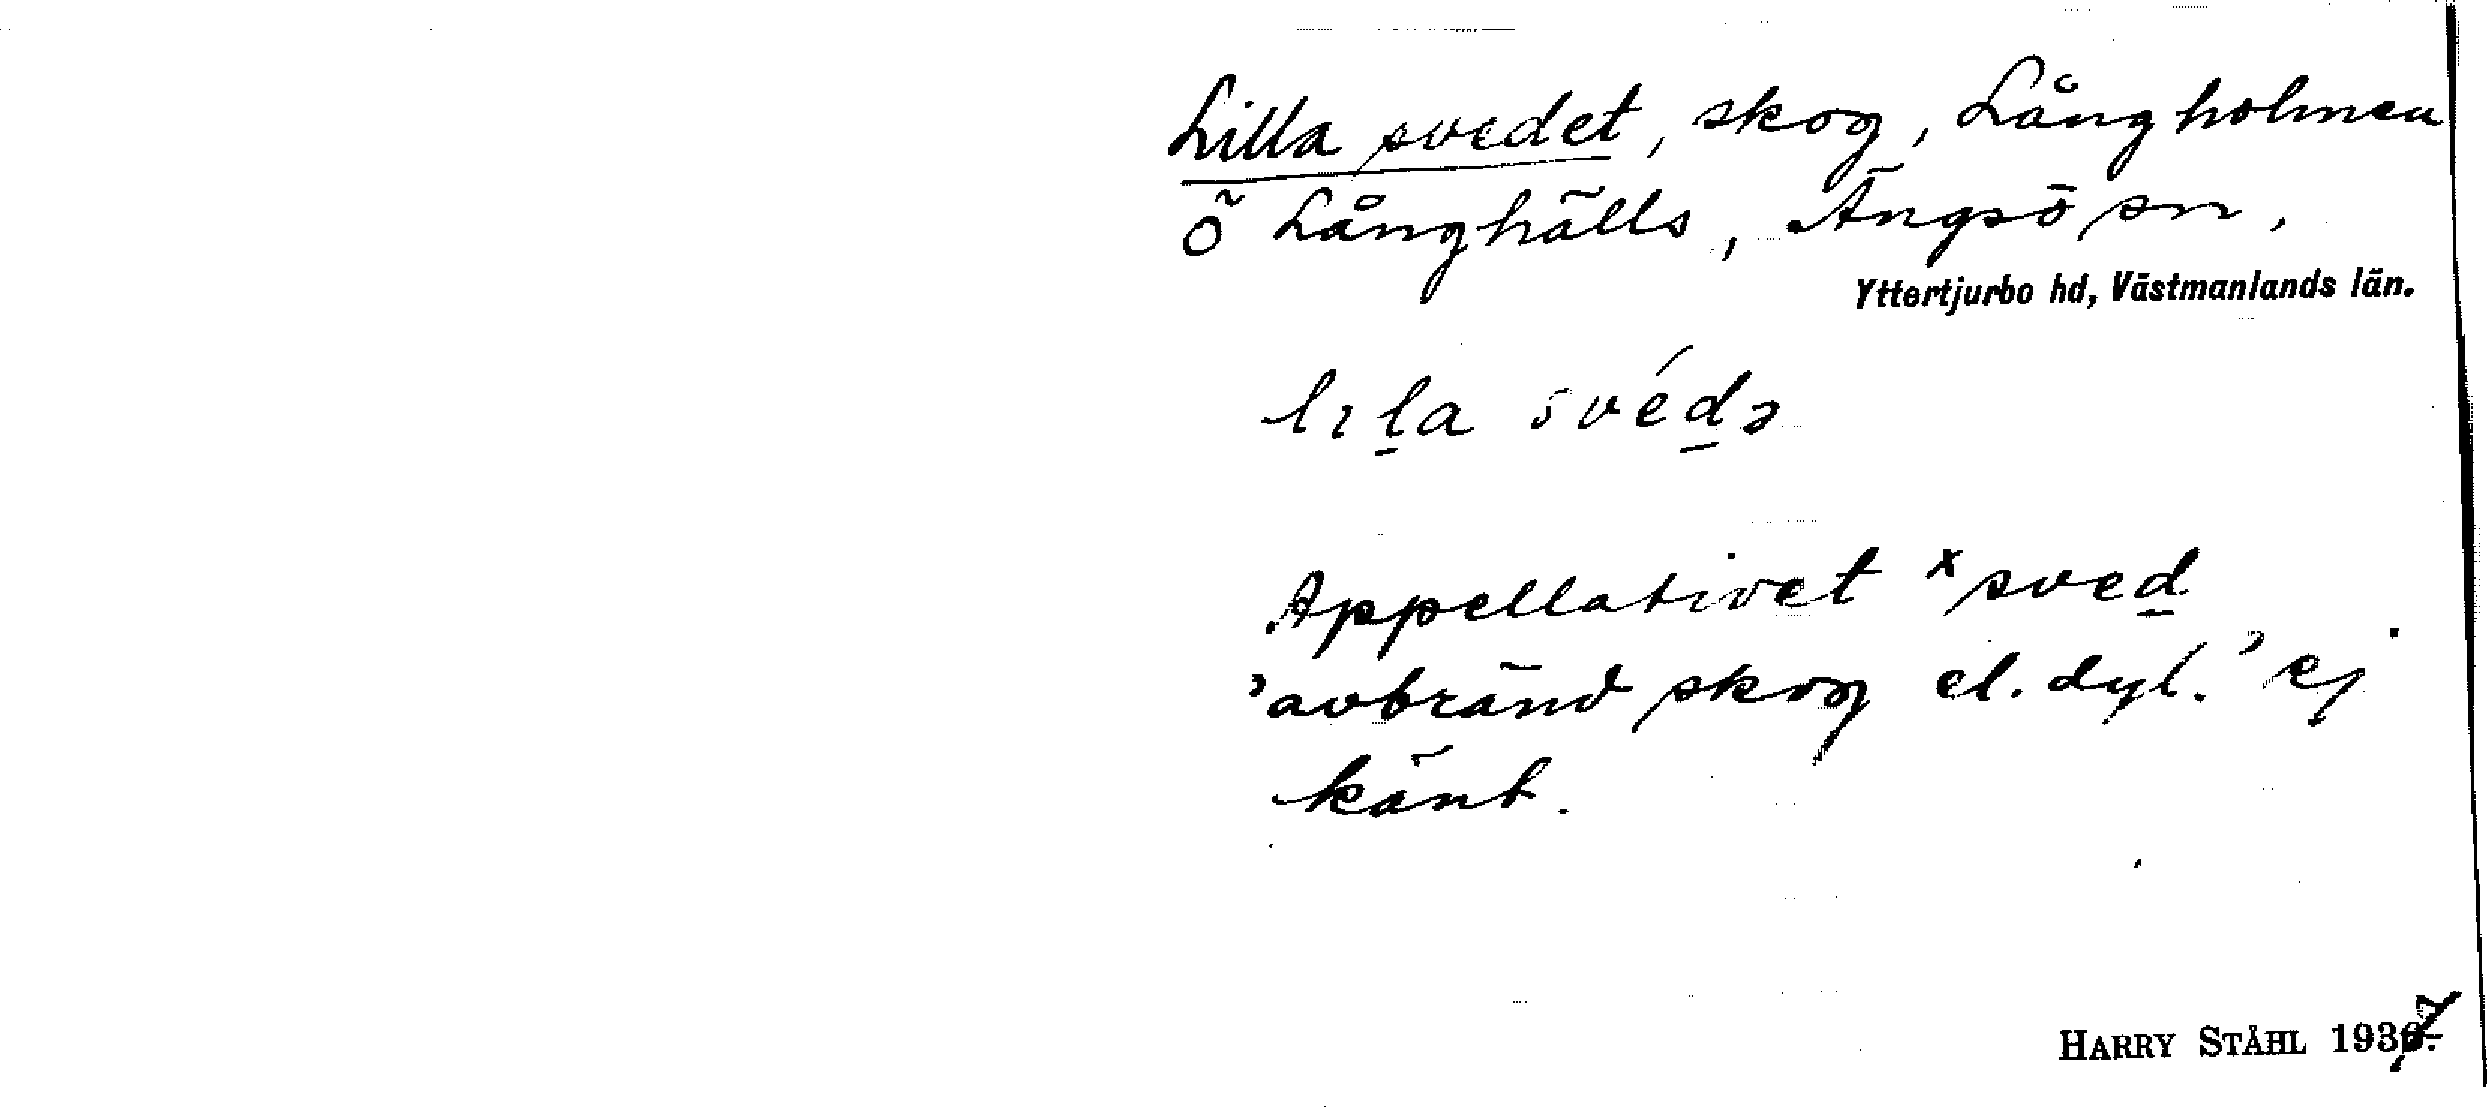 Lilla svedet, skog, Långholmen
ö Långhälls, Ängsö sn,
Yttertjurbo hd, Västmanlands län.
lıl̠a svéd̠ə
Appellativet ˣsved̠
'avbränd skog el. dyl.' ej
känt.
HARRY STÅHL 1937